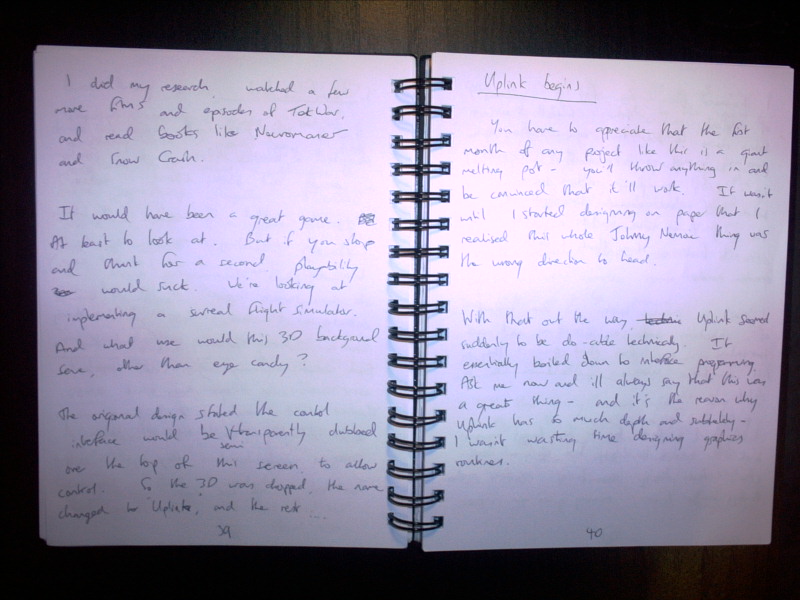 I did my research, watched a few
more films and episodes of TekWar,
and read books like Neuromancer
and Snow Crash.
It would have been a great game.
At least to look at. But if you stop
and think for a second, playability
would suck. We're looking at
implementing a surreal flight simulator.
And what use would this 3D background
serve, other than eye candy?
The original design stated the control
interface would be transparently dubbed
semi
over the top of this screen, to allow
control. So the 3D was dropped, the name
changed to 'Uplink', and the rest ...
39
Uplink begins
You have to appreciate that the first
month of any project like this is a giant
melting pot - you'll throw anything in and
be convinced that it'll work. It wasn't
until I started designing on paper that I
realised this whole Johnny Nemonic thing was
the wrong direction to head.
With that out the way, Uplink seemed
suddenly to be do-able technically. It
essentially boiled down to interface programming.
Ask me now and ill always say that this was
a great thing - and it's the reason why
Uplink has so much depth and subtlety -
I wasn't wasting time designing graphics
routines.
40